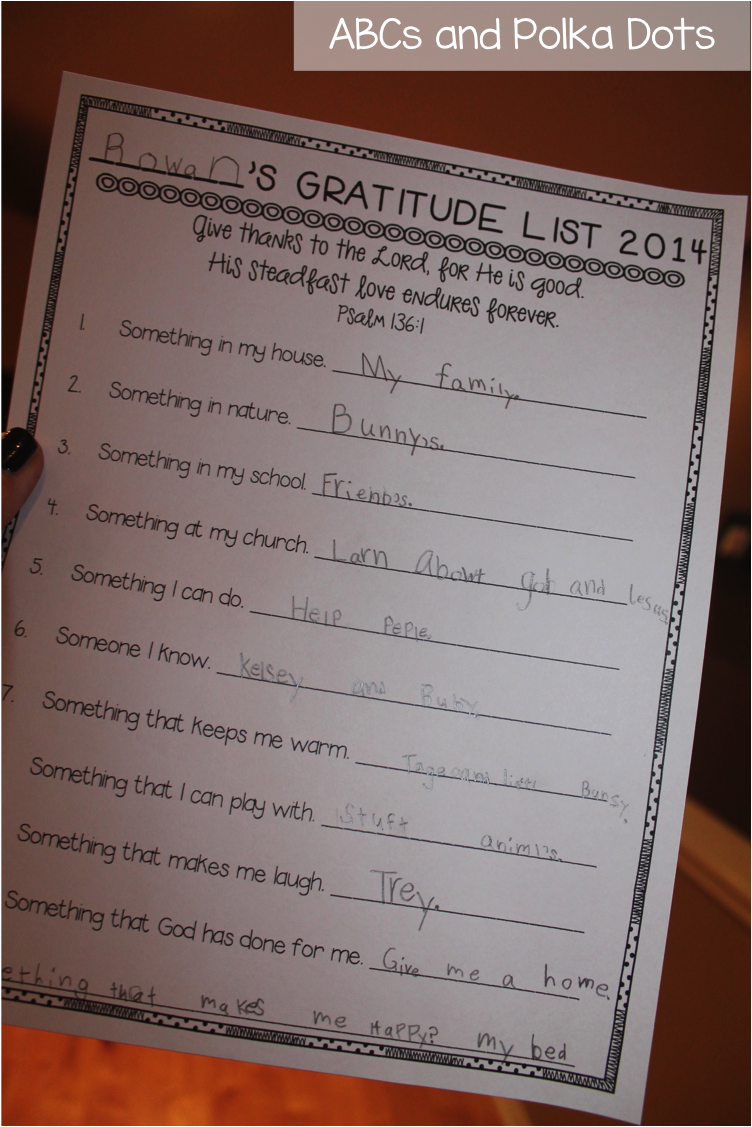 ABCs and Polka Dots
Rowan's GRATITUDE LIST 2014
Give thanks to the Lord, for He is good.
His steadfast love endures forever.
Psalm 136:1
1. Something in my house. My family.
2. Something in nature. Bunny's.
3. Something in my school. Friend's.
4. Something at my church. Larn About god and Jesus
5. Something I can do. Help Peple.
6. Someone I know. Kelsey and
7. Something that keeps me warm. Bunsy.
Something that I can play with. Stuft animl's.
Something that makes me laugh. Trey.
Something that God has done for me. Give me a home.
ething that makes me Happy? my bed